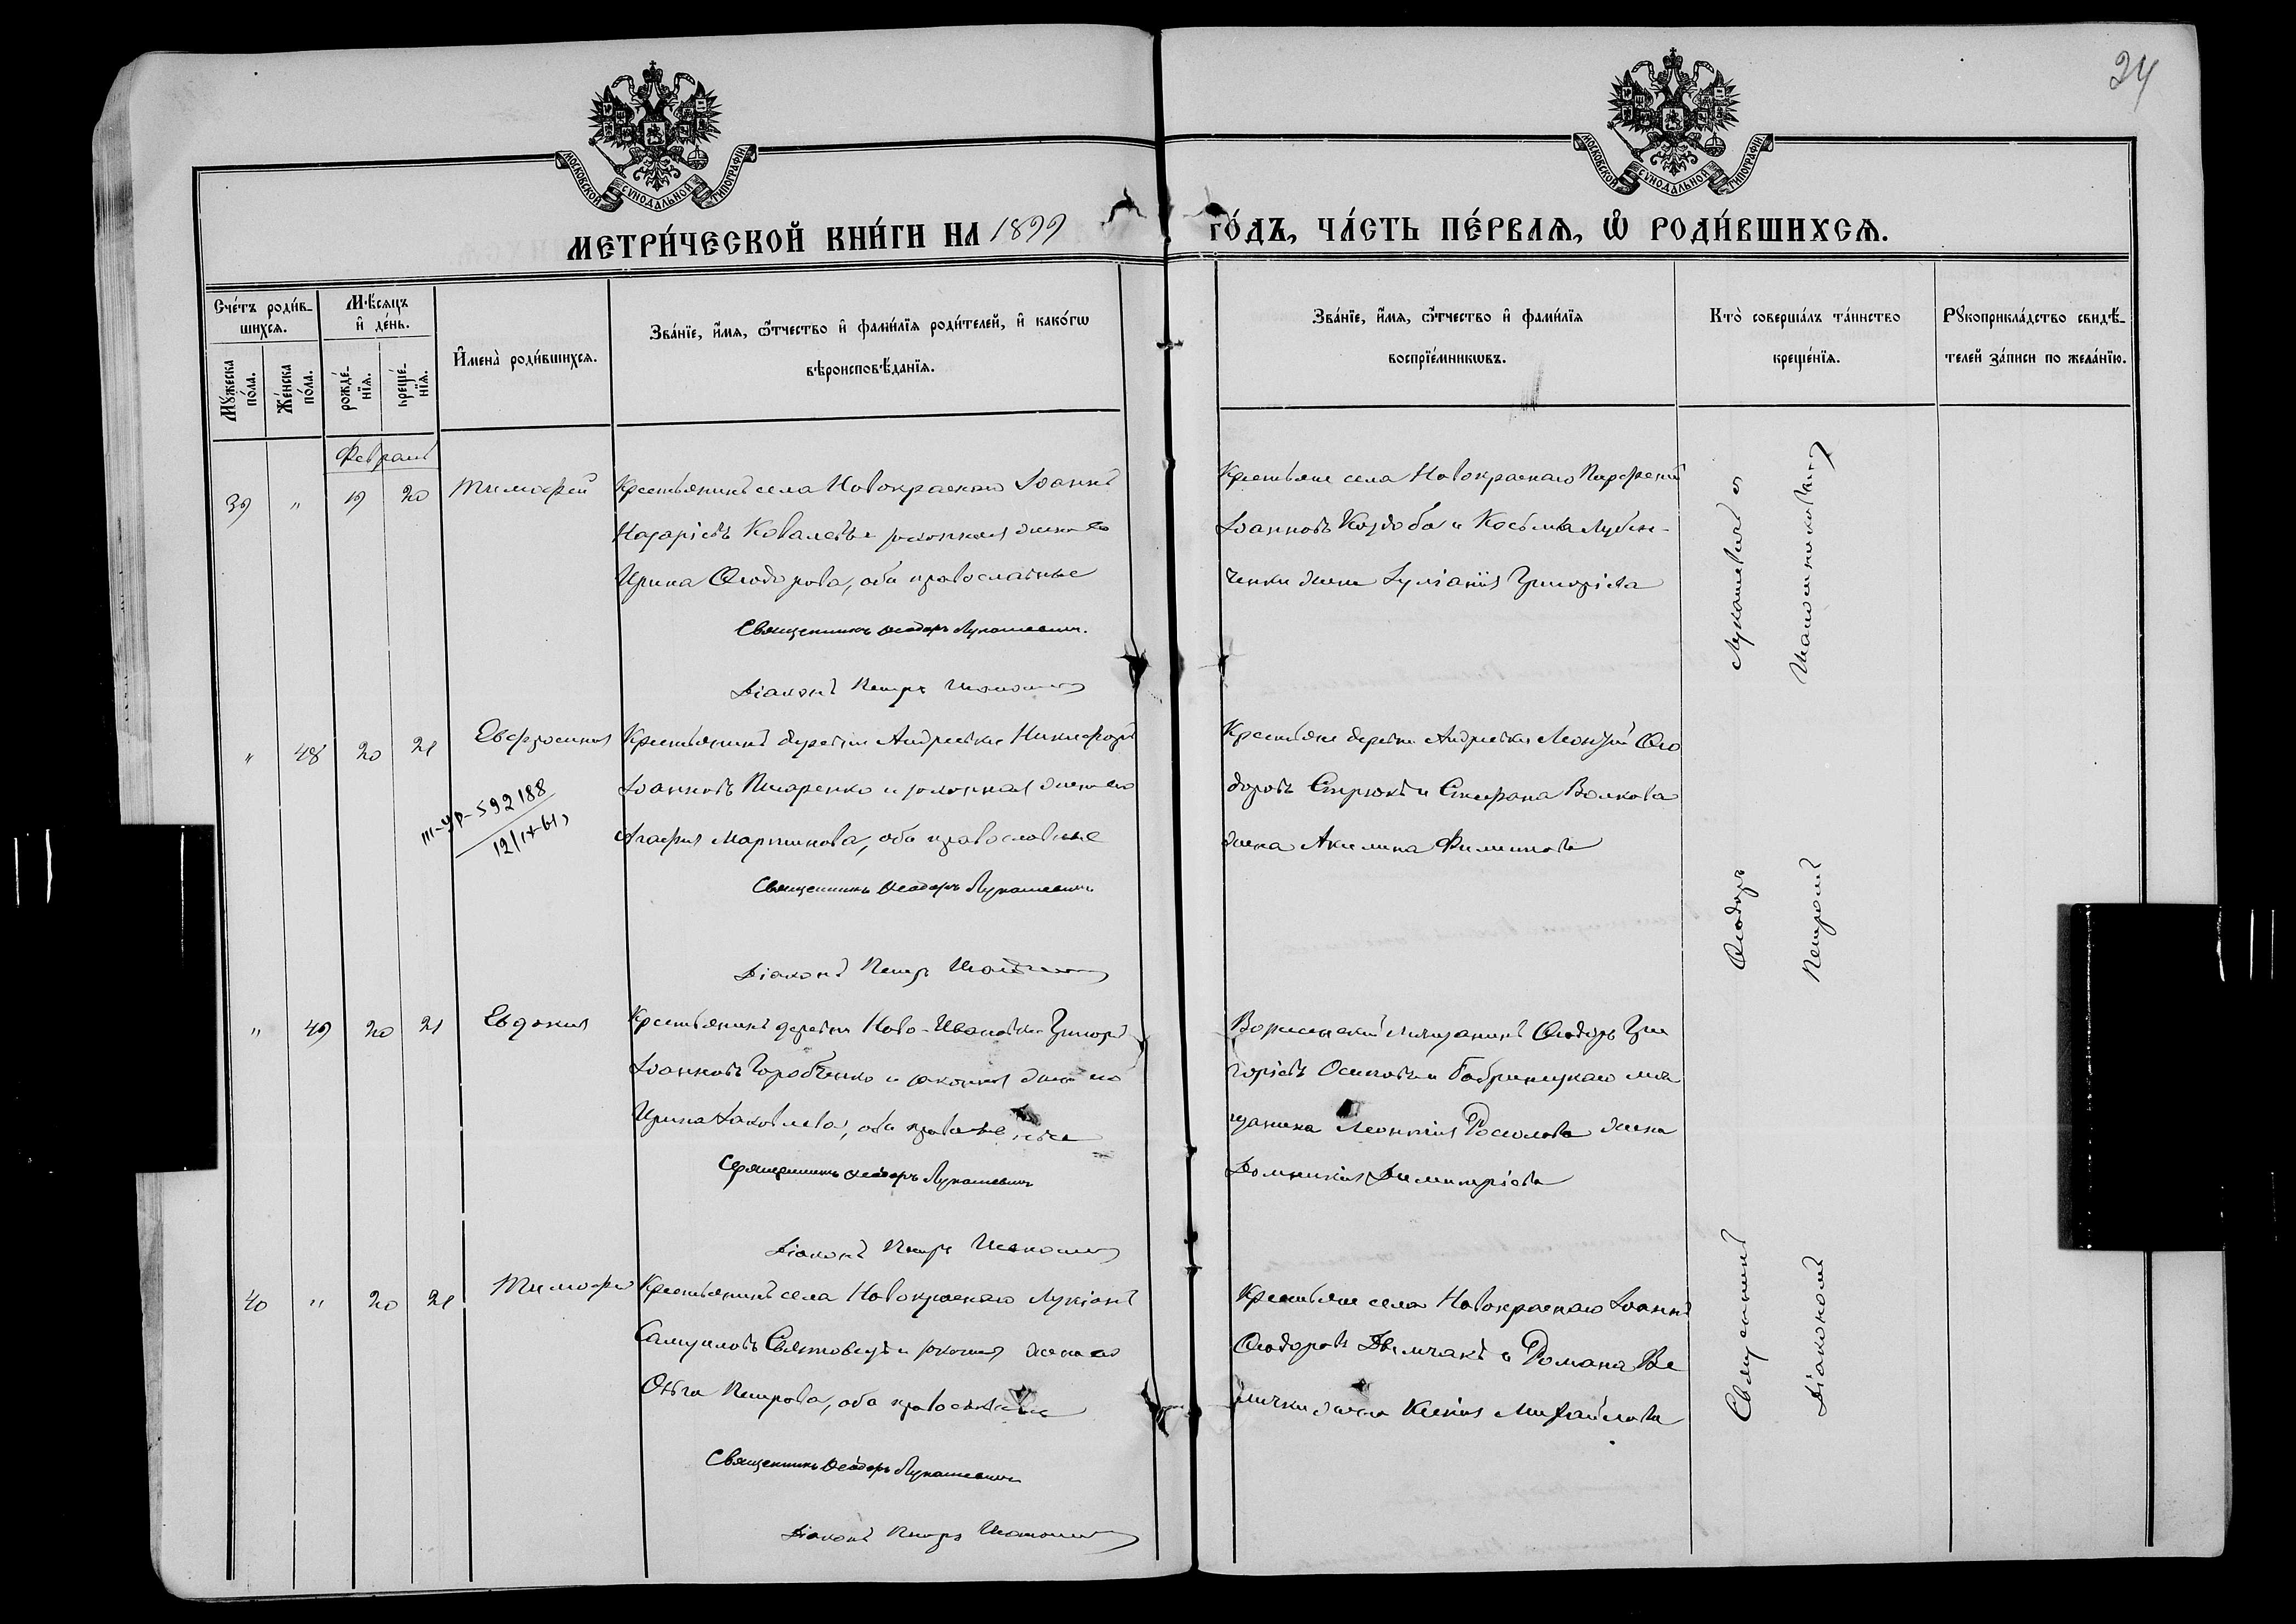 24
МОСКОВСКОЙ СУНОДАЛЬНОЙ ТИПОГРАФІИ
МОСКОВСКОЙ СУНОДАЛЬНОЙ ТИПОГРАФІИ
МЕТРИ́ЧЕСКОЙ КНИ́ГИ НА 1899 ГО́ДЪ, ЧА́СТЬ ПЕ́РВАѦ, Ѡ РОДИ́ВШИХСѦ.
Сче́тъ роди́в-
шихсѧ.
Мѣ́сѧцъ
и҆ де́нь.
Мꙋ́жеска
по́ла.
Же́нска
по́ла.
рожде́-
нїѧ.
креще́-
нїѧ.
И҆мена̀ роди́вшихсѧ.
Зва́нїе, и҆́мѧ, ѻ҆́тчество и҆ фами́лїѧ роди́телей, и҆ како́гѡ
вѣроисповѣ́данїѧ.
Зва́нїе, и҆́мѧ, ѻ҆́тчество и҆ фами́лїѧ
воспрїе́мникѡвъ.
Кто̀ соверша́лъ та́инство
креще́нїѧ.
Рꙋкоприкла́дство свидѣ́-
телей за́писи по жела́нїю.
Февраль
39 " 19 20 Тимофей Крестьянинъ села Новокраснаго Іоаннъ
Назаріевъ Ковалевъ и законная жена его
Ирина Ѳеодорова, оба православные
Священникъ Ѳеодоръ Лукашевичъ.
Діаконъ Петръ
Крестьяне села Новокраснаго Парфеній
Іоанновъ Коздоба и Косьмы Лубен-
ченки жена Іуліанія Григоріева
" 48 20 21 Евфросинія Крестьянинъ деревни Андреевки Никифоръ
Іоанновъ Писаренко и законная жена его
Агафія Мартинова, оба православные
Священникъ Ѳеодоръ Лукашевичъ
Діаконъ Петръ
III-УР-592188
12/IX-61,
Крестьяне деревни Андреевки Леонтій Ѳео
доровъ Стрюкъ и Стефана Волкова
жена Акилина Филиппова
" 49 20 21 Евдокія Крестьянинъ деревни Ново-Ивановки Григорій
Іоанновъ Горобченко и законная жена его
Ирина Іаковлева, оба православные
Священникъ Ѳеодоръ Лукашевичъ
Діаконъ Петръ
мѣщанинъ Ѳеодоръ Гри
горіевъ Осиповъ и Бобринецкаго мѣ
щанина Леонтія жена
Домникія Димитріева
40 " 20 21 Тимофей Крестьянинъ села Новокраснаго Лукіанъ
Самуиловъ и законная жена его
Ольга Петрова, оба православные
Священникъ Ѳеодоръ Лукашевичъ
Діаконъ Петръ
Крестьяне села Новокраснаго Іоаннъ
Ѳеодоровъ и Романа Ве
лички жена Ксенія Михайлова
Священникъ Ѳеодоръ Лукашевичъ съ
Діакономъ Петромъ